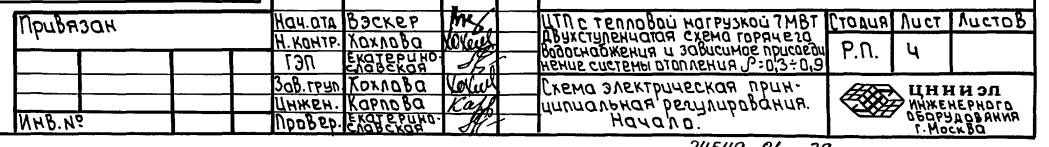 Привязан
Инв.№
Нач.отд Вэскер
Н.контр. Хохлова
ГЭП Екатерино-
славская
Зав.груп Хохлова
Инжен. Карпова
Провер. Екатерино-
славская
ЦТП с тепловой нагрузкой 7МВт
Двухступенчатая схема горячего
водоснабжения и зависимое присоеди
нение системы отопления ρ=0,3÷0,9
Схема электрическая прин-
ципиальная регулирования.
Начало.
Стадия Лист Листов
Р.П. 4
ЦНИИЭП
ИНЖЕНЕРНОГО
ОБОРУДОВАНИЯ
г.Москва